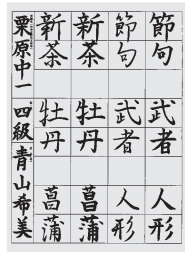 節句 武者 人形
節句 武者 人形
新茶 牡丹 菖蒲
新茶 牡丹 菖蒲
栗原中一 四級 青山希美